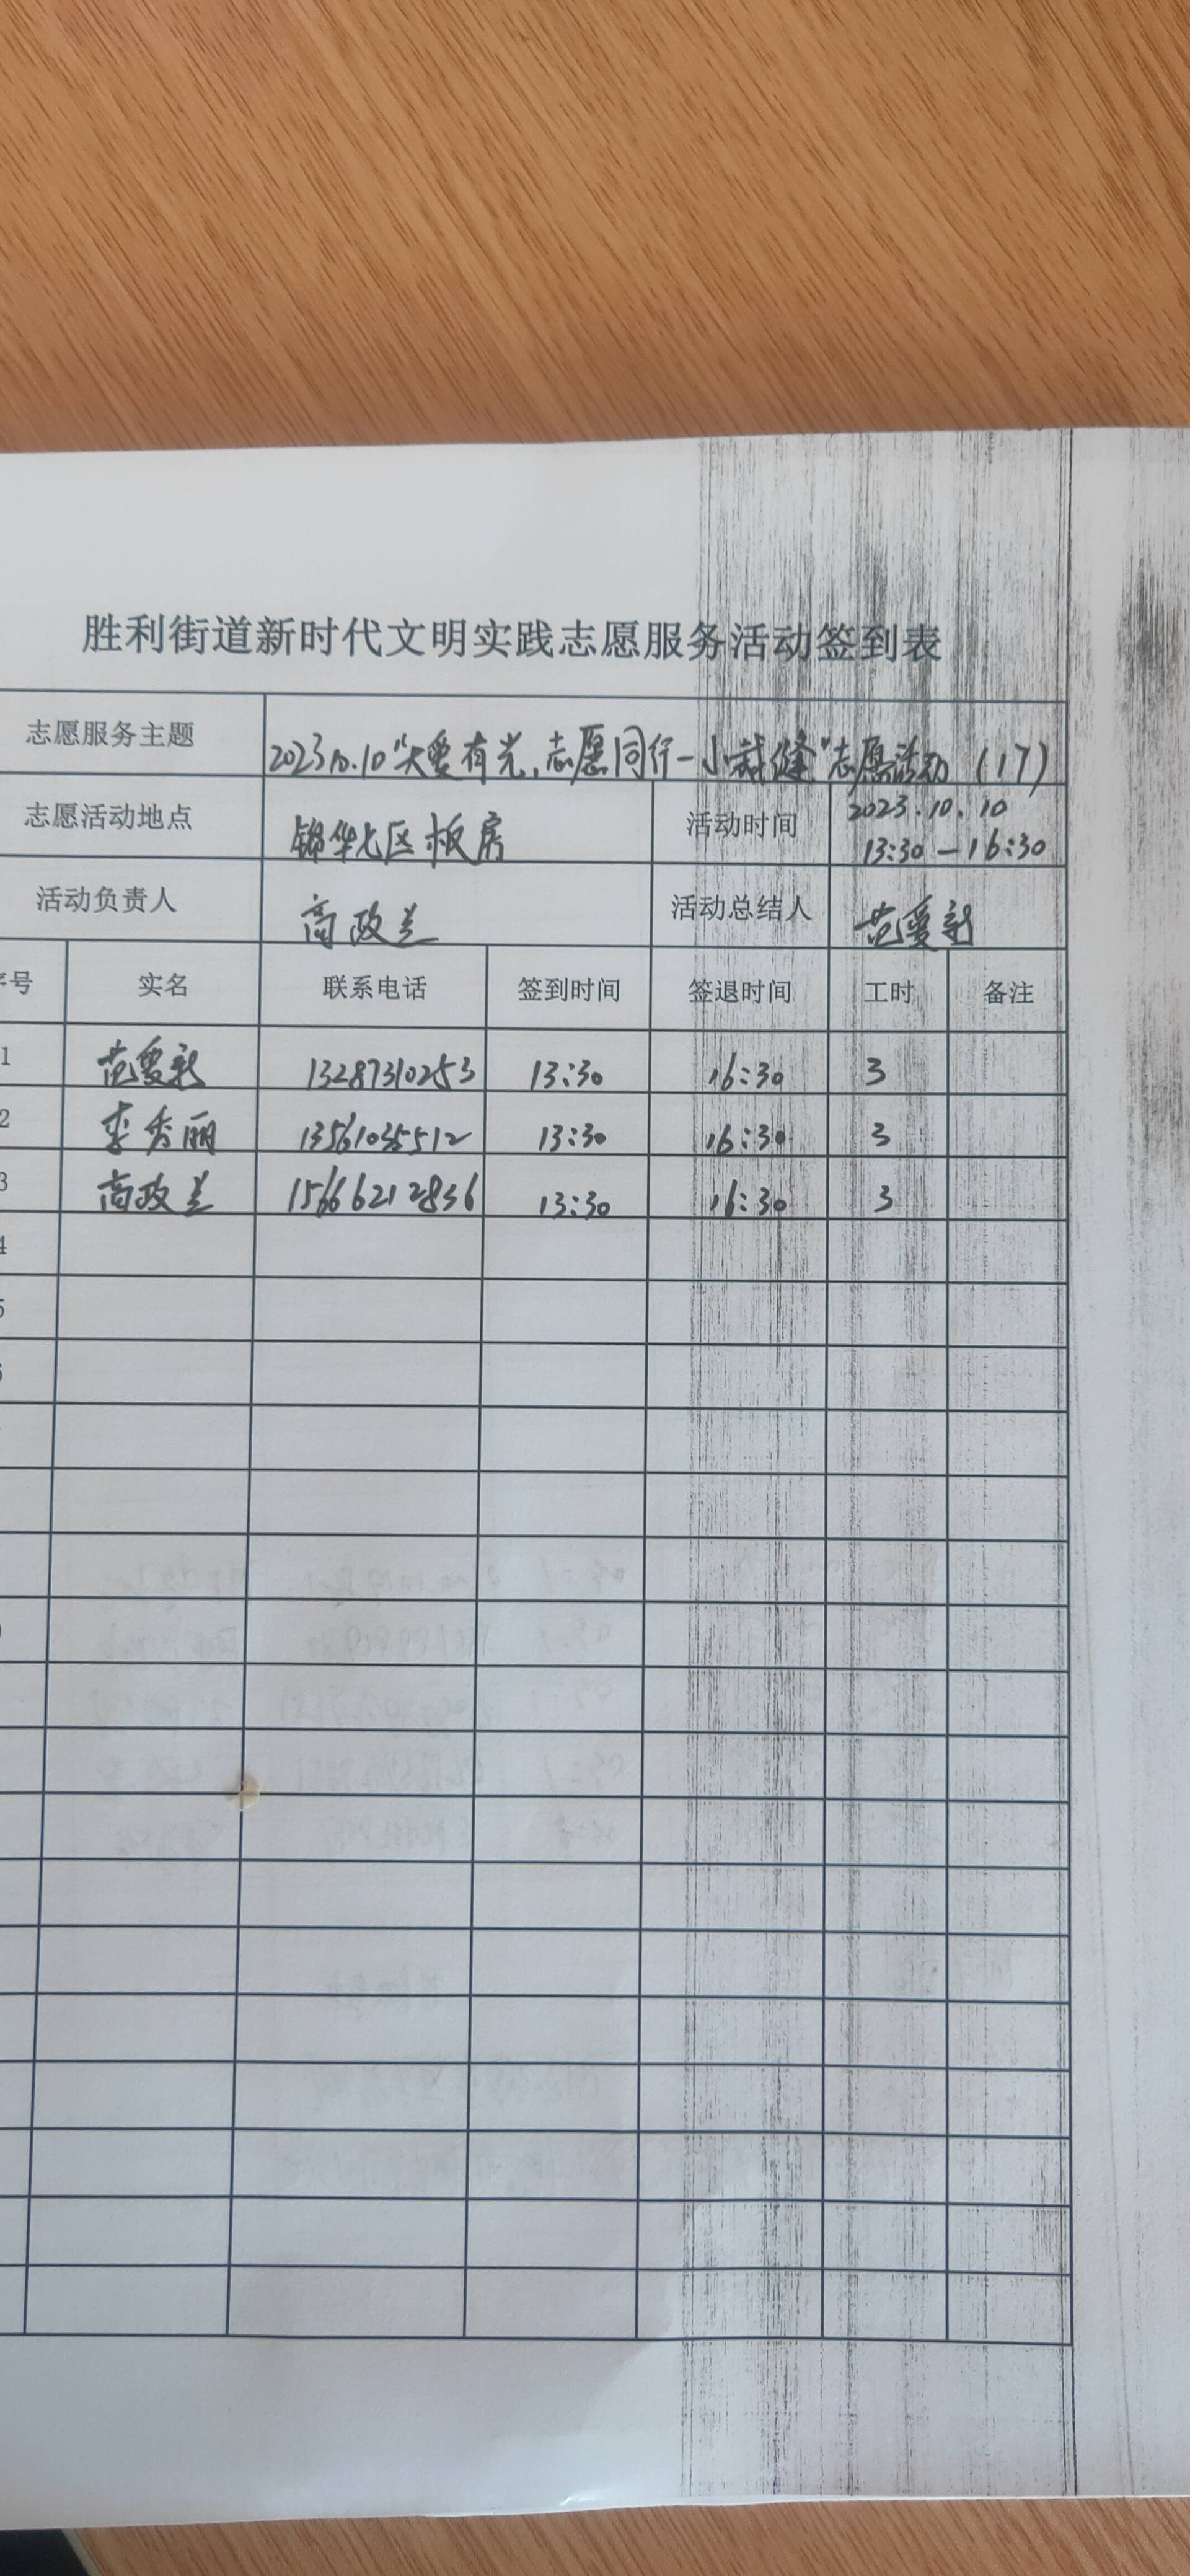 胜利街道新时代文明实践志愿服务活动签到表
志愿服务主题 2023.10.10"大爱有光,志愿同行-小裁缝"志愿活动(17)
志愿活动地点 锦华七区板房 活动时间 2023.10.10
13:30-16:30
活动负责人 高政兰 活动总结人 范爱新
序号 实名 联系电话 签到时间 签退时间 工时 备注
1 范爱新 13287310253 13:30 16:30 3
2 李秀丽 13561035512 13:30 16:30 3
3 高政兰 15666212836 13:30 16:30 3
4
5
6